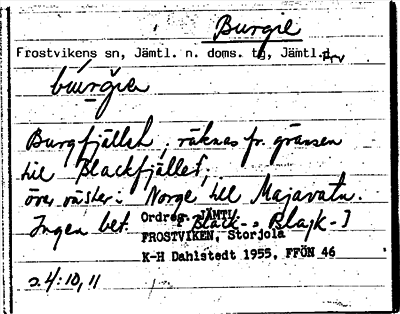 Burgie
Frostvikens sn, Jämtl. n. doms. tg, Jämtl.
Burgfjället, räknas fr. gränsen
till Blackfjället,
över väster i Norge till Majavatn.
Ingen bet. [Black- > Blajk-]
Ordreg. JÄMTL.
FROSTVIKEN, Storjola
K-H Dahlstedt 1955, FFÖN 46
s. 4: 10, 11